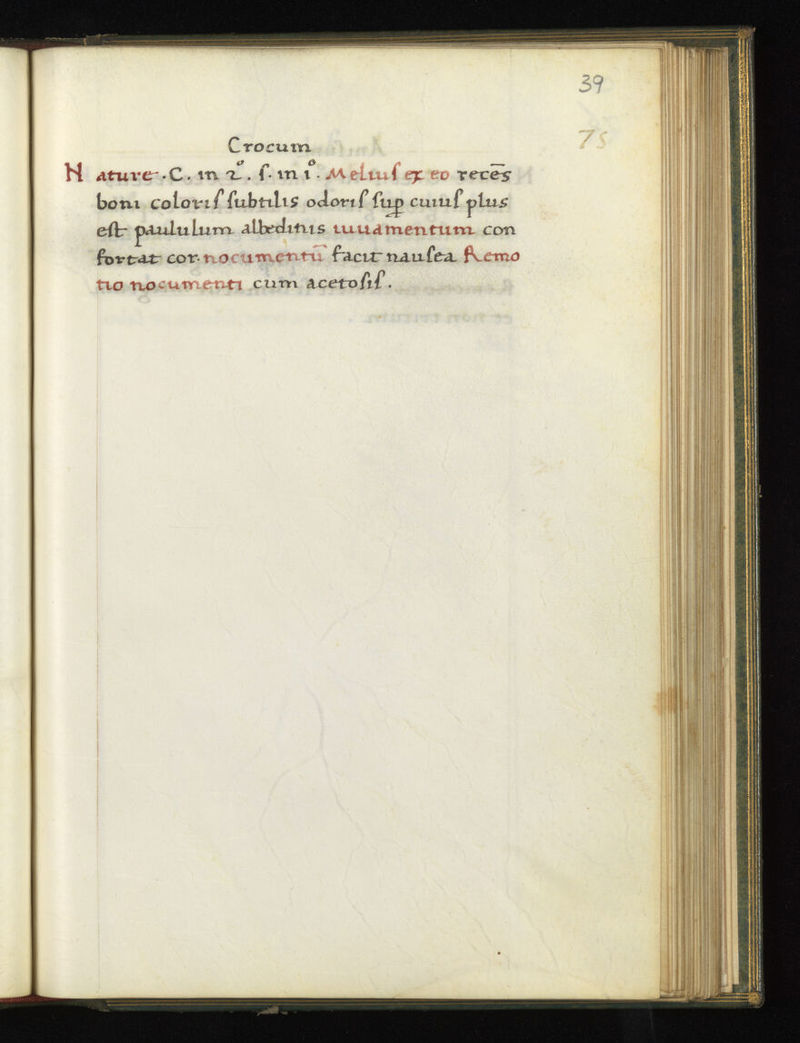 39
75
Crocum
Nature .C. in 2°. ſ. in i°. Meliuſ ex eo recēs
boni coloriſ ſubtilis odoriſ ſuꝑ cuiuſ plus
eſt paululum albedinis iuuamentum con
fortat cor. nocumentū facit nauſea Remo
tio nocumenti cum acetoſiſ.